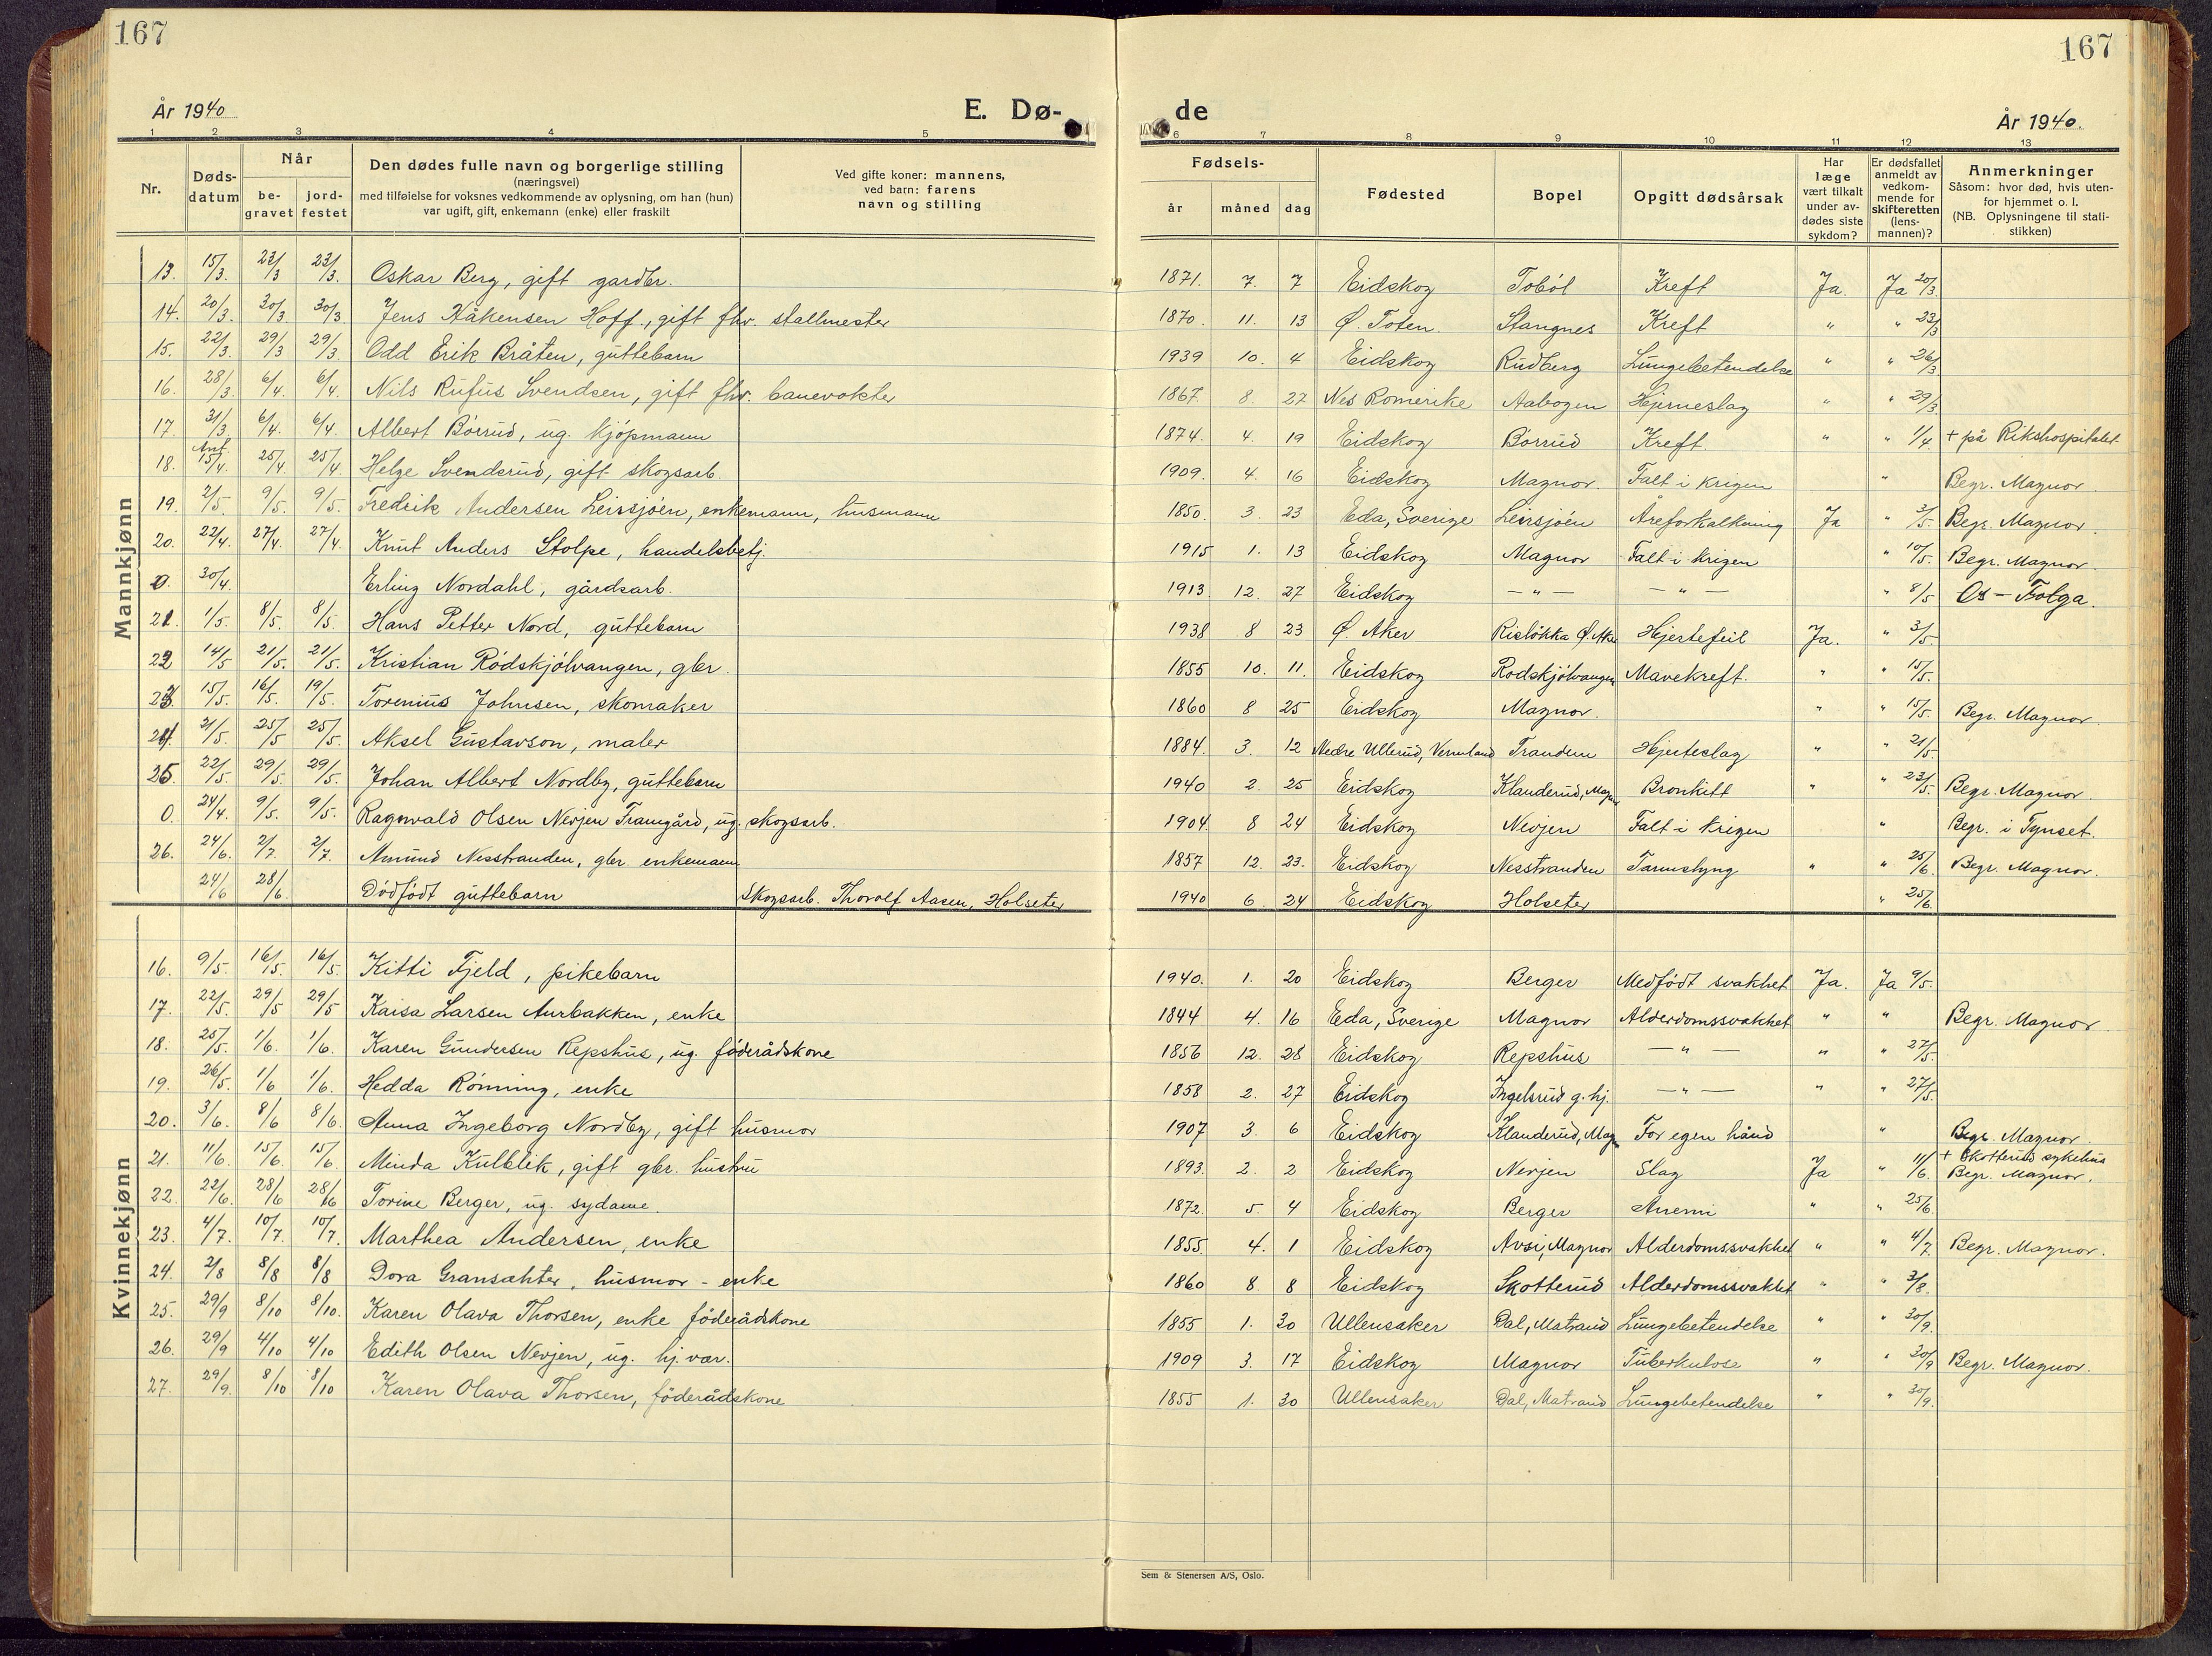 167
167
År 1940
E. Dø-
de
År 1940.
1 2 3 4 5 6 7 8 9 10 11 12 13
Nr.
Døds-
datum
Når
be-
gravet
jord-
festet
Den dødes fulle navn og borgerlige stilling
(næringsvei)
med tilføielse for voksnes vedkommende av oplysning, om han (hun)
var ugift, gift, enkemann (enke) eller fraskilt
Ved gifte koner: mannens,
ved barn: farens
navn og stilling
Fødsels-
år måned dag
Fødested
Bopel
Opgitt dødsårsak
Har
læge
vært tilkalt
under av-
dødes siste
sykdom?
Er dødsfallet
anmeldt av
vedkom-
mende for
skifteretten
(lens-
mannen)?
Anmerkninger
Såsom: hvor død, hvis uten-
for hjemmet o. l.
(NB. Oplysningene til stati-
stikken)
Mannkjønn
13. 15/3. 23/3 23/3. Oskar Berg, gift gardbr. 1871. 7. 7 Eidskog Toból Kreft Ja. Ja 20/3.
14. 20/3. 30/3 30/3 Jens Håkensen Hoff., gift fhv. stallmester 1870. 11. 13 Ø. Toten. Stangnes Kreft " " 23/3
15. 22/3. 29/3 29/3. Odd Erik Bråten, guttebarn 1939 10. 4 Eidskog Rudberg Lungebetendelse " " 26/3
16. 28/3 6/4. 6/4. Nils Rufus Svendsen, gift fhv. banevokter 1867. 8. 27 Nes Romerike Aabogen Hjerneslag " " 29/3
17. 31/3 6/4. 6/4. Albert Börrud, ug. kjöpmann 1874. 4. 19 Eidskog Börrud Kreft. " " 1/4 + på Rikshospitalet
18. Ant. 15/4. 25/4 25/4 Helge Svendsrud, gift skogsarb. 1909. 4. 16 Eidskog Magnor. Falt i krigen " Begr. Magnor.
19. 2/5. 9/5. 9/5. Fredrik Andersen Leirsjöen, enkemann, husmann 1850. 3. 23 Eda, Sverige Leirsjöen Åreforkalkning Ja " 3/5. Begr. Magnor.
20. 22/4. 27/4. 27/4. Knut Anders Stolpe, handelsbetj. 1915 1. 13 Eidskog Magnor Falt i krigen " 10/5. Begr. Magnor.
0. 30/4. Erling Nordahl, gårdsarb. 1913 12. 27 Eidskog — " — — " — " 8/5 Os - Tolga.
21. 1/5. 8/5. 8/5. Hans Petter Nord, guttebarn 1938 8 23 Ø. Aker Risløkka Ø. Aker Hjertefeil Ja. " 3/5.
22 14/5 21/5. 21/5. Kristian Rödskjölvangen, gbr. 1855 10. 11. Eidskog Rodskjölvangen Mavekreft. " " 15/5.
23. 15/5. 16/5. 19/5. Torenius Johnsen, skomaker 1860 8 25 Eidskog Magnor. " " 15/5. Begr. Magnor.
24. 21/5. 25/5 25/5. Aksel Gustavson, maler 1884. 3. 12 Nedre Ullerud, Vermland Trandem Hjerteslag " " 21/5.
25. 22/5. 29/5. 29/5. Johan Albert Nordby, guttebarn 1940 2. 25 Eidskog Klanderud, Magnor Bronkitt " " 23/5. Begr. Magnor.
0. 24/4. 9/5. 9/5. Ragnvald Olsen Nevjen Framgård, ug. skogsarb. 1904 8 24 Eidskog Nevjen Falt i krigen " Begr. i Tynset.
26. 24/6. 2/7. 2/7. Amund Nesstranden, gbr. enkemann 1857 12. 23. Eidskog Nesstranden Tarmslyng " " 25/6 Begr. Magnor.
24/6 28/6 Dödfödt guttebarn Skogsarb. Thorolf Aasen, Holseter 1940 6. 24 Eidskog Holseter " 25/6.
Kvinnekjønn
16. 9/5. 16/5. 16/5. Kitti Fjeld, pikebarn 1940. 1. 20 Eidskog Berger Medfödt svakhet Ja. Ja 9/5.
17. 22/5. 29/5 29/5 Kaisa Larsen Aurbakken, enke 1844 4. 16 Eda, Sverige Magnor Alderdomssvakhet " " Begr. Magnor.
18. 25/5. 1/6. 1/6. Karen Gundersen Repshus, ug. föderådskone 1856 12. 28 Eidskog Repshus — " — " " 27/5.
19. 26/5. 1/6 1/6. Hedda Rönning, enke 1858 2. 27 Eidskog Ingelsrud g. hj. — " — " " 27/5.
20. 3/6. 8/6 8/6. Anna Ingeborg Nordby, gift husmor 1907 3. 6 Eidskog Klanderud, Mag For egen hånd " Begr. Magnor.
21. 11/6. 15/6. 15/6. Minda Kulblik, gift gbr. hustru 1893. 2. 2 Eidskog Nevjen Slag Ja " 11/6. + Skotterud sykehus Begr. Magnor.
22. 22/6. 28/6 28/6 Torine Berger, ug. sydame. 1872. 5. 4 Eidskog Berger Anemi " " 25/6.
23. 4/7. 10/7. 10/7. Marthea Andersen, enke 1855. 4. 1 Eidskog Avsi, Magnor Alderdomssvakhet " " 4/7 Begr. Magnor.
24. 2/8 8/8 8/8 Dora Gransæter, husmor - enke 1860 8. 8 Eidskog Skotterud Alderdomssvakhet " " 3/8.
25. 29/9 8/10 8/10. Karen Olava Thorsen, enke föderådskone 1855 1. 30 Ullensaker Dal, Matrand Lungebetendelse " " 30/9.
26. 29/9 4/10 4/10 Edith Olsen Nevjen, ug. hj. vær. 1909 3. 17 Eidskog Magnor Tuberkulose " " 30/9 Begr. Magnor.
27. 29/9. 8/10 8/10 Karen Olava Thorsen, föderådskone 1855 1. 30 Ullensaker Dal, Matrand Lungebetendelse " " 30/9.
Sem & Stenersen A/S, Oslo.